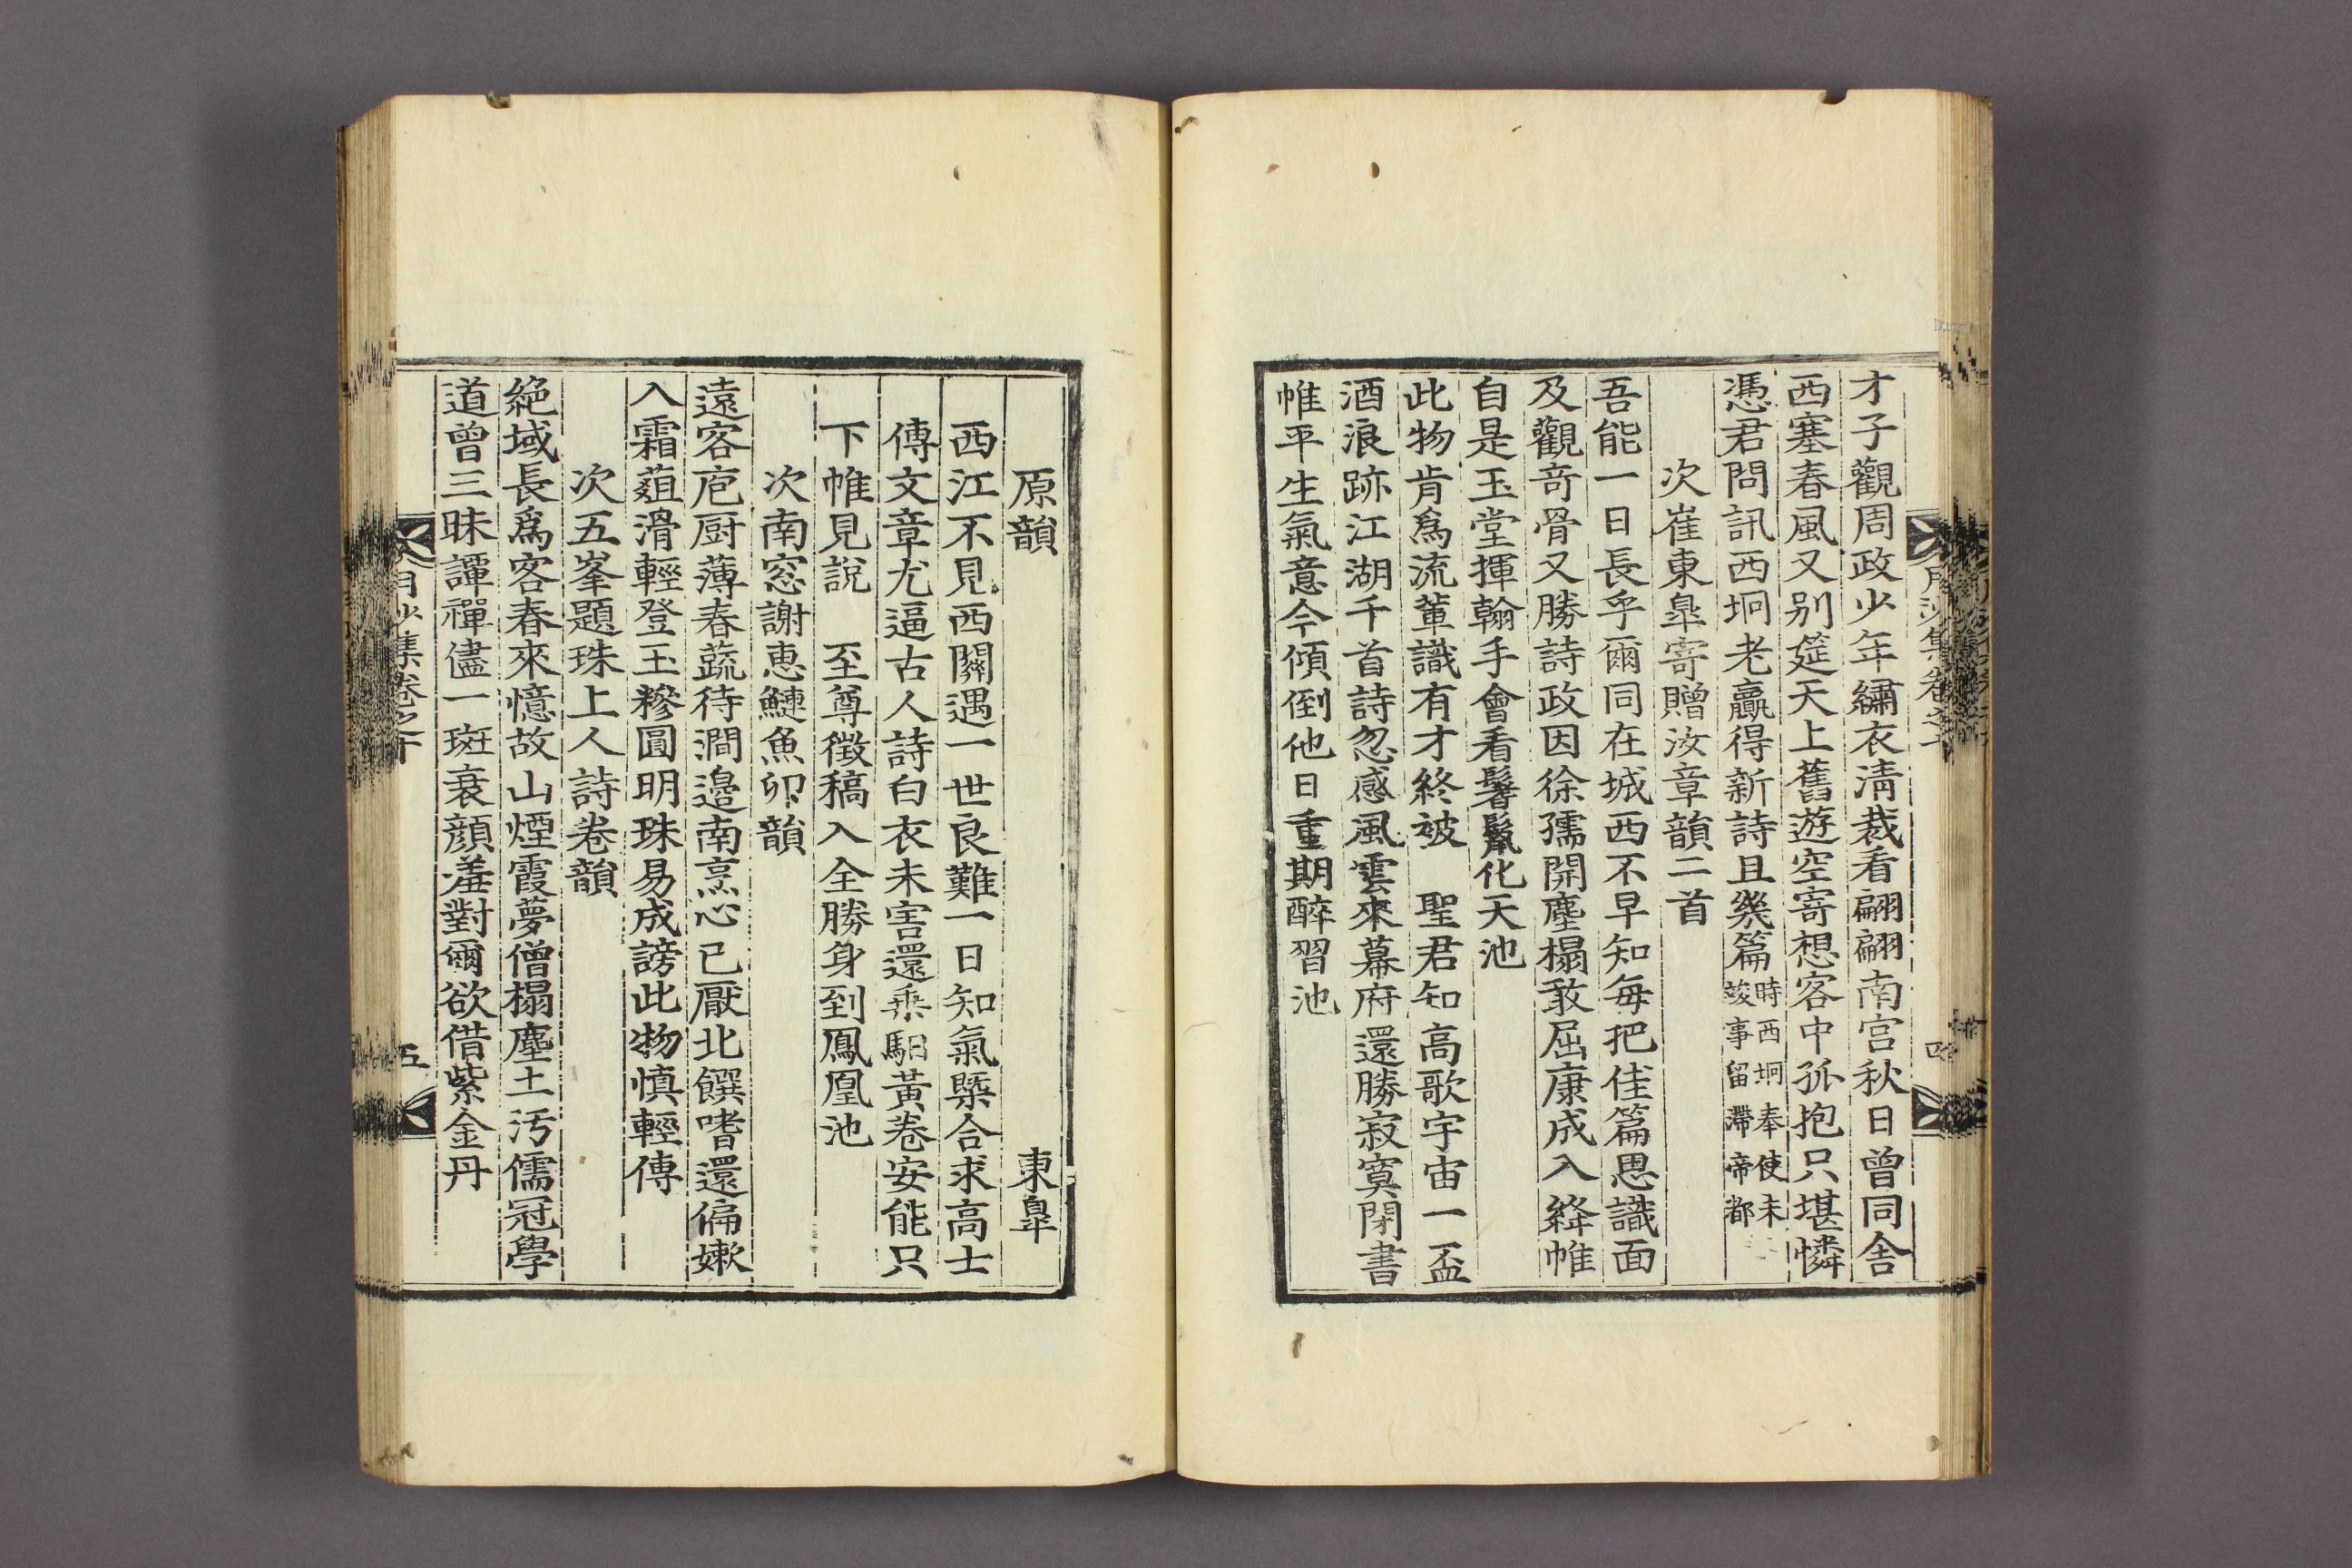 才子觀周政少年繡衣淸裁看翩翩南宮秋日曾同舍
西塞春風又別筵天上舊遊空寄想客中孤抱只堪憐
憑君問訊西坰老贏得新詩且幾篇時西坰奉使未竣事留滯帝都
次崔東皐寄贈汝章韻二首
吾能一日長乎爾同在城西不早知每把佳篇思識面
及觀奇骨又勝詩政因徐孺開塵榻敢屈康成入絳帷
自是玉堂揮翰手會看鬐鬣化天池
此物肯爲流輩識有才終被 聖君知高歌宇宙一盃
酒浪跡江湖千首詩忽感風雲來幕府還勝寂寞閉書
帷平生氣意今傾倒他日重期醉習池
月沙集卷之十
四
原韻 東皐
西江不見西關遇一世良難一日知氣槩合求高士
傳文章尤逼古人詩白衣未害還乘馹黃卷安能只
下帷見說 至尊徵稿入全勝身到鳳凰池
次南窓謝惠鰱魚卵韻
遠客庖厨薄春蔬待澗邊南烹心已厭北饌嗜還偏嫰
入霜葅滑輕登玉糝圓明珠易成謗此物愼輕傳
次五峯題珠上人詩卷韻
絶域長爲客春來憶故山煙霞夢僧榻塵土汚儒冠學
道曾三昧譚禪儘一斑衰顔羞對爾欲借紫金丹
月沙集卷之十
五